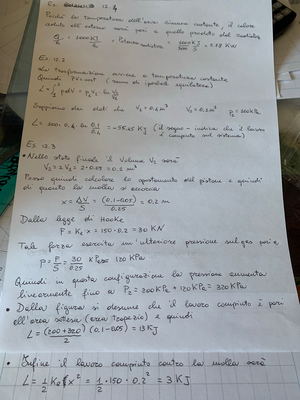 Ex. 12.4
Poiché la temperatura dell'aria rimane costante, il calore
ceduto all'esterno sarà pari a quello prodotto dal radiatore
= Potenza radiatore = = 0.28 KW
Ex. 12.2
La trasformazione avviene a temperatura costante
Quindi PV = cost (ramo di iperbole equilatera)
L = ∫ p dV = P₁ V₁ ln V₂/V₁
Sappiamo dai dati che V₁ = 0,4 m³ V₂ = 0,1 m³ P₁ = 100 kPa
L = 100 · 0,4 ln 0,1/0,4 = -55.45 KJ (il segno - indica che il lavoro
è compiuto sul sistema)
Ex. 12.3
• Nello stato finale il Volume V₂ sarà
V₂ = 2 V₁ = 2 · 0.05 = 0,1 m³
Posso quindi calcolare lo spostamento del pistone e quindi
di quanto la molla si accorcia
x = ΔV/S = (0,1-0.05)/0.25 = 0.2 m
Dalla legge di Hooke
F = Ke x = 150 · 0.2 = 30 KN
Tale forza esercita un'ulteriore pressione sul gas pari a
P = F/S = 30/0.25 120 KPa
Quindi in questa configurazione la pressione aumenta
linearmente fino a P₂ = 200 KPa + 120 KPa = 320 KPa
• Dalla figura si desume che il lavoro compiuto è pari
all'area sottesa (area Trapezio) e quindi
L = (200+320)/2 (0.1-0.05) = 13 KJ
• Infine il lavoro compiuto contro la molla sarà
L = 1/2 Ke x² = 1/2 · 150 · 0.2² = 3 KJ